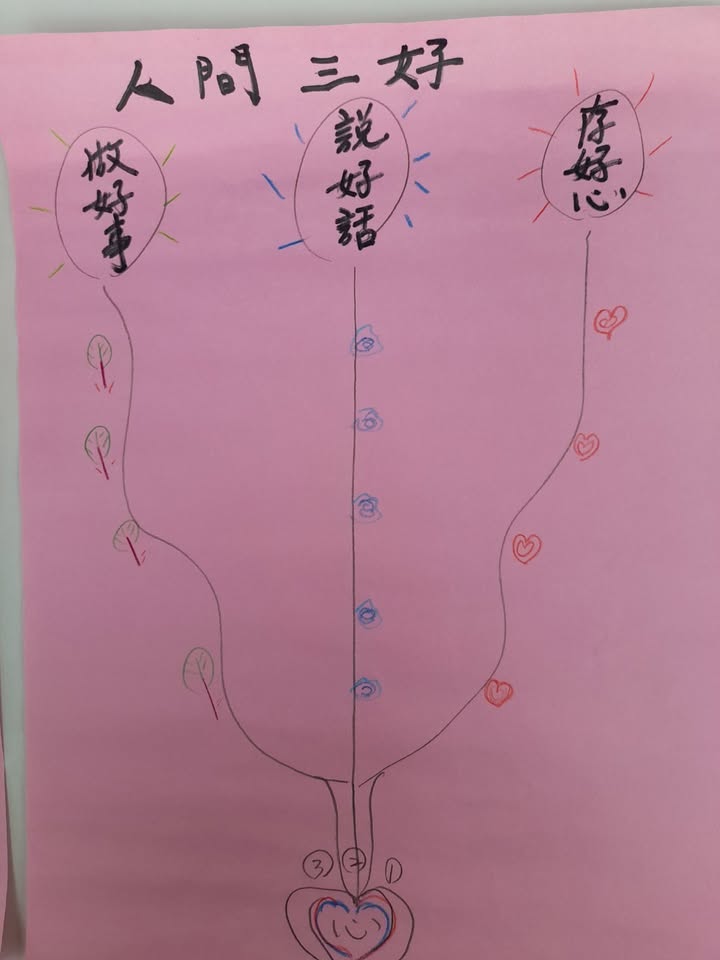 人間三好
做好事
說好話
存好心
③ ② ①
心